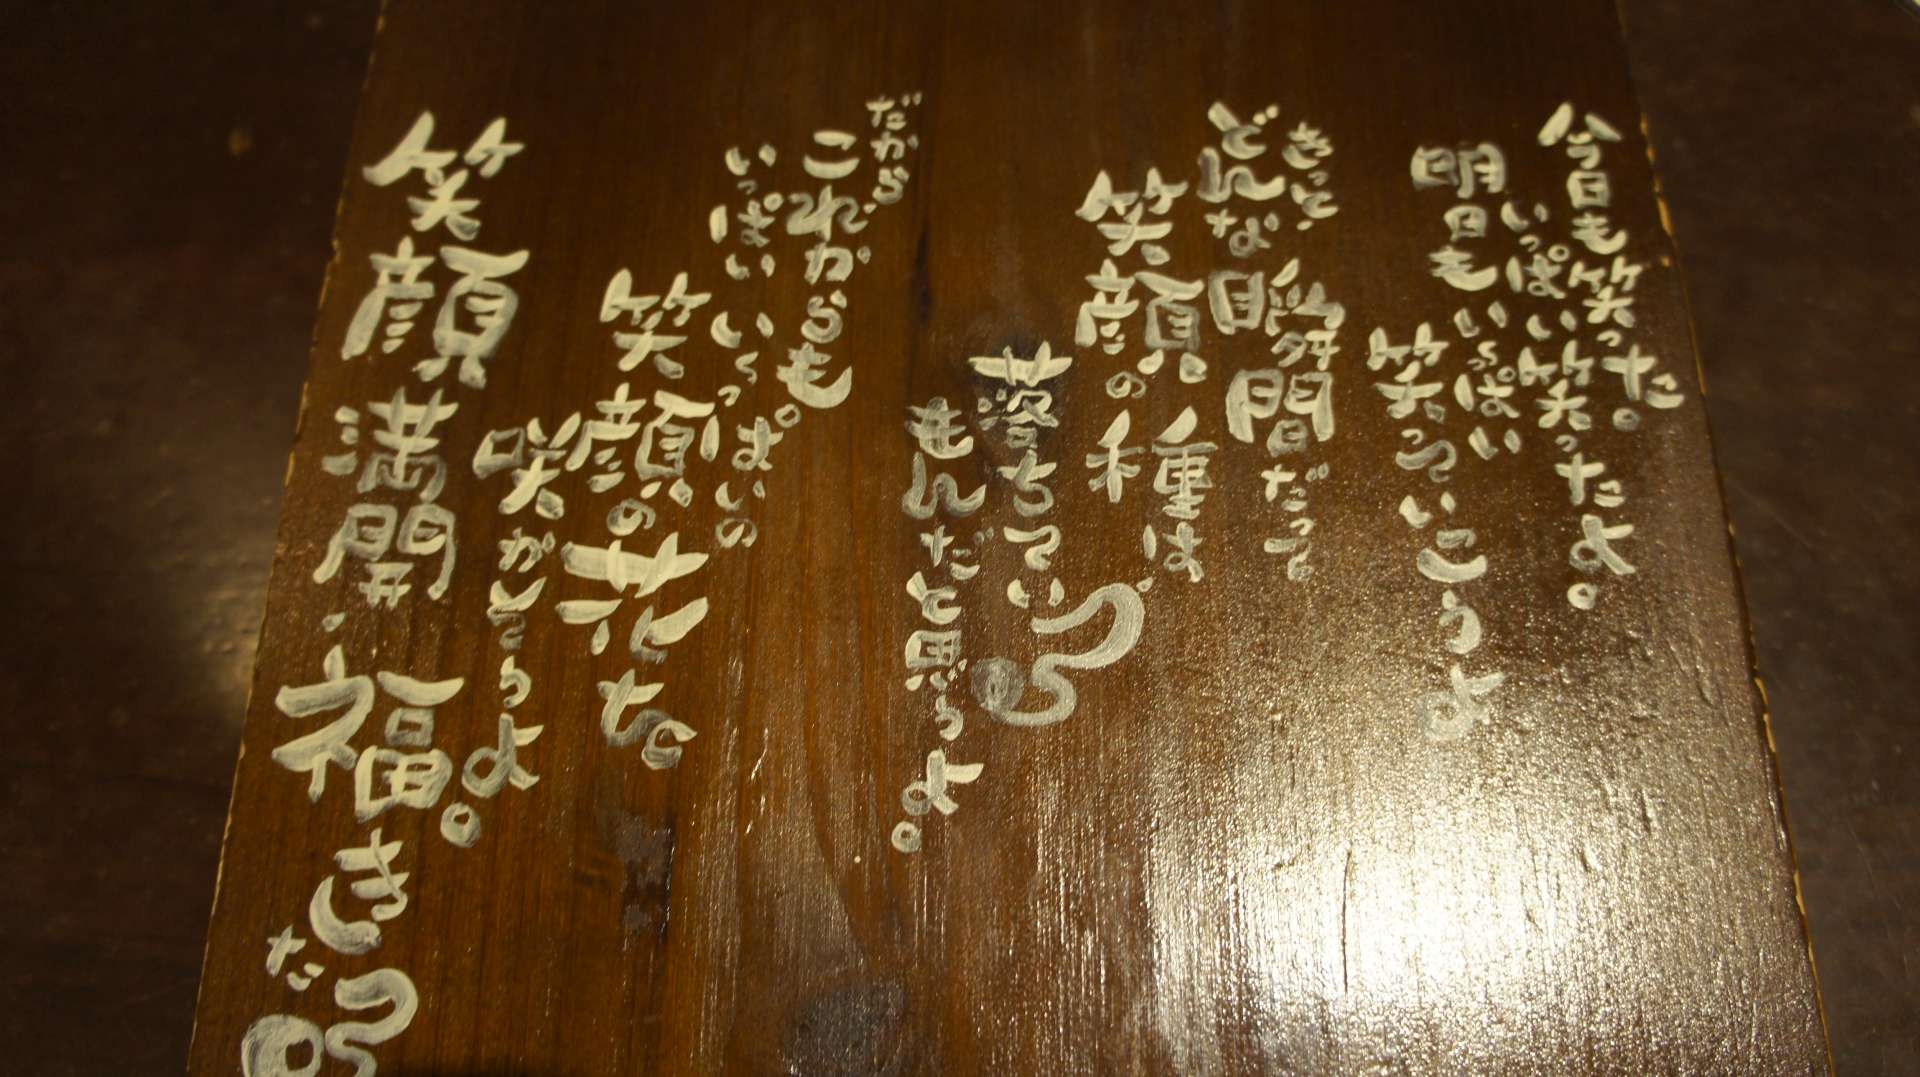 今日も笑った。
いっぱい笑ったよ。
明日もいっぱい
笑っていこうよ
きっと、
どんな瞬間だって
笑顔の種は、
落ちている
もんだと思うよ。
だから
これからも。
いっぱいいっぱいいっぱいの
笑顔の花を
咲かしてこうよ。
笑顔満開、福きだ